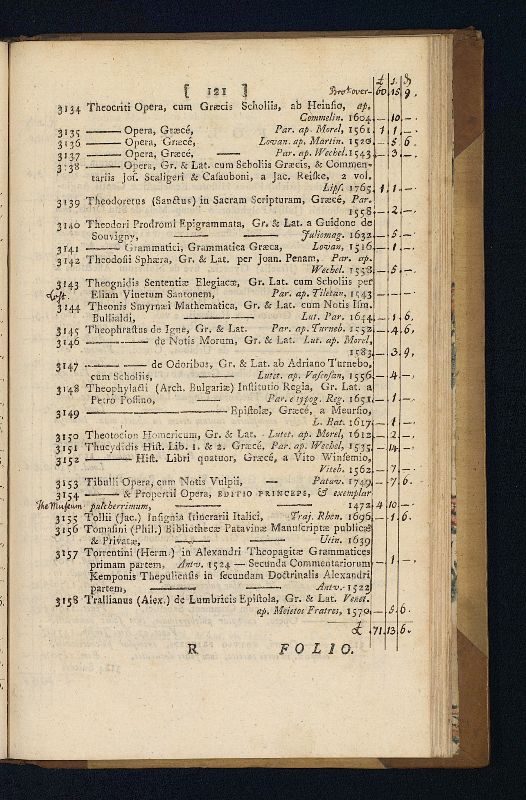 £ s. d
[ 121 ] Brot over- 60.15.9.
3134 Theocriti Opera, cum Græcis Scholiis, ab Heinsio, ap.
Commelin. 1604 — 10 —
3135 —— Opera, Græcé, Par. ap. Morel, 1561 1. 1. —
3136 —— Opera, Græcé, Lovan. ap. Martin. 1520 — 5 6
3137 —— Opera, Græcé, — Par. ap. Wechel. 1543 — 3 —
3138 —— Opera, Gr. & Lat. cum Scholiis Græcis, & Commen-
tariis Jos. Scaligeri & Casauboni, a Jac. Reiske, 2 vol.
Lips. 1765 1. 1 —
3139 Theodoretus (Sanctus) in Sacram Scripturam, Græcé, Par.
1558 — 2 —
3140 Theodori Prodromi Epigrammata, Gr. & Lat. a Guidone de
Souvigny, — — Juliomag. 1632 — 5 —
3141 —— Grammatici, Grammatica Græca, Lovan, 1516 — 1 —
3142 Theodosii Sphæra, Gr. & Lat. per Joan. Penam, Par. ap.
Wechel. 1558 — 5 —
3143 Theognidis Sententiæ Elegiacæ, Gr. Lat. cum Scholiis per
Lost. Eliam Vinetum Santonem, Par. ap. Tiletan, 1543 — — —
3144 Theonis Smyrnæi Mathematica, Gr. & Lat. cum Notis Ism.
Bullialdi, —— Lut. Par. 1644 — 1. 6.
3145 Theophrastus de Igne, Gr. & Lat. Par. ap. Turneb. 1552 — 4. 6.
3146 —— de Notis Morum, Gr. & Lat. Lut. ap. Morel,
1583 — 3. 9.
3147 —— — de Odoribus, Gr. & Lat. ab Adriano Turnebo,
cum Scholiis, —— Lutet. ap. Vascosan, 1556 — 4 —
3148 Theophylacti (Arch. Bulgariæ) Institutio Regia, Gr. Lat. a
Petro Possino, — Par. e typog. Reg. 1651 — 1 —
3149 —— Epistolæ, Græcé, a Meursio,
L. Bat. 1617 — 1 —
3150 Theotocion Homericum, Gr. & Lat. Lutet. ap. Morel, 1612 — 2 —
3151 Thucydidis Hist. Lib. 1. & 2. Græcé. Par. ap. Wechel, 1535 — 14 —
3152 —— Hist. Libri quatuor, Græcé, a Vito Winsemio,
Viteb. 1562 — 7 —
3153 Tibulli Opera, cum Notis Vulpii, — Patav. 1749 — 7. 6.
3154 —— & Propertii Opera, EDITIO PRINCEPS, & exemplar
The Museum pulcherrimum, — — 1472 4 10 —
3155 Tollii (Jac.) Insignia Itinerarii Italici, — Traj. Rhen. 1696 — 1. 6
3156 Tomasini (Phil.) Bibliothecæ Patavinæ Manuscriptæ publicæ
& Privatæ, — — Utin. 1639
3157 Torrentini (Herm.) in Alexandri Theopagitæ Grammatices
primam partem, Antv. 1524 — Secunda Commentariorum — 1 —
Kemponis Thepuliensis in secundam Doctrinalis Alexandri
partem, — — Antv. 1522
3158 Trallianus (Alex.) de Lumbricis Epistola, Gr. & Lat. Venet.
ap. Meietos Fratres, 1570 — 5. 6.
£ 71. 13. 6.
R FOLIO.